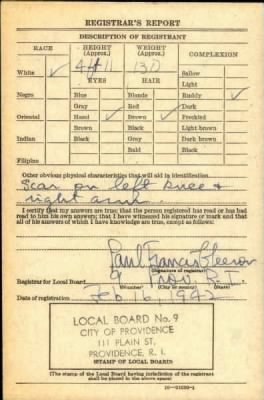 REGISTRAR'S REPORT
DESCRIPTION OF REGISTRANT
RACE HEIGHT (Approx.) WEIGHT (Approx.) COMPLEXION
White ✓ 130 Sallow
EYES HAIR Light
Negro Blue Blonde Ruddy ✓
Gray Red Dark
Oriental Hazel ✓ Brown ✓ Freckled
Brown Black Light brown
Indian Black Gray Dark brown
Bald Black
Filipino
Other obvious physical characteristics that will aid in identification
Scar on left knee +
right arm.
I certify that my answers are true; that the person registered has read or has had
read to him his own answers; that I have witnessed his signature or mark and that
all of his answers of which I have knowledge are true, except as follows:
Paul Francis
(Signature of registrar)
Registrar for Local Board 9 Prov. R. I.
(Number) (City or county) (State)
Date of registration Feb 16, 1942
LOCAL BOARD No. 9
CITY OF PROVIDENCE
111 PLAIN ST.
PROVIDENCE, R. I.
(STAMP OF LOCAL BOARD)
(The stamp of the Local Board having jurisdiction of the registrant
shall be placed in the above space.)